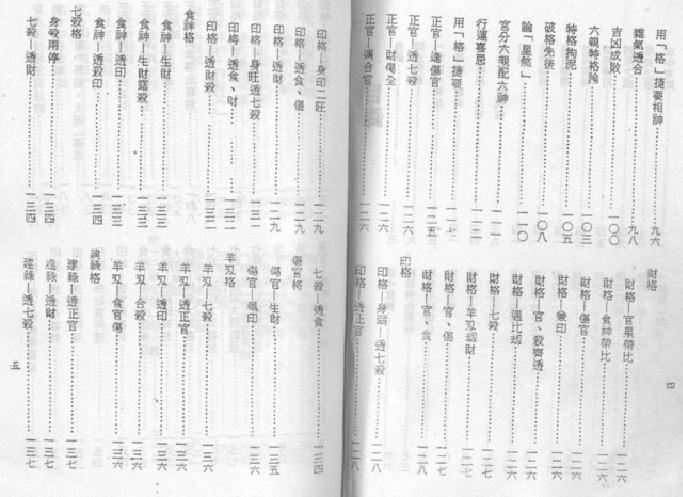 用「格」捷要相神……九六
雜氣透合……九八
吉凶成敗……一〇〇
六親特格論……一〇三
特格拘泥……一〇五
破格先後……一〇八
論「星煞」……一一〇
宮分六親配六神……一一一
行運喜忌……一一二
用「格」捷要……一一七
正官－逢傷官……一二五
正官－透七殺……一二六
正官－財傷全……一二六
正官－遇合官……一二六
財格
財格－官星帶比……一二六
財格－食神帶比……一二六
財格－傷官……一二六
財格－兼印……一二六
財格－官、殺齊透……一二六
財格－遇比刼……一二六
財格－七殺……一二七
財格－羊刄刼財……一二七
財格－官、傷……一二七
財格－官、食……一二八
印格
印格－身弱－透七殺……一二八
印格－透正官……一二八
四
印格－身印二旺……一二九
印格－透食、傷……一二九
印格－透財……一二九
印格－身旺透七殺……一三一
印格－透食、財……一三二
印格－透財殺……一三二
食神格
食神－生財……一三三
食神－生財露殺……一三三
食神－透印……一三三
食神－透殺印……一三四
七殺格
身殺兩停……一三四
七殺－透財……一三四
七殺－透食……一三四
傷官格
傷官－生財……一三五
傷官－佩印……一三六
羊刄格
羊刄－七殺……一三六
羊刄－透正官……一三六
羊刄－透印……一三六
羊刄－合殺……一三六
羊刄－食官傷……一三六
建祿格
建祿－透正官……一三七
建祿－透財……一三七
建祿－透七殺……一三七
五